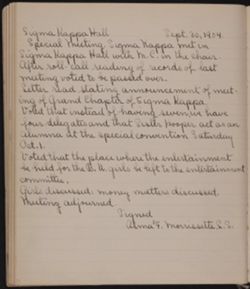 Sigma Kappa Hall Sept. 30, 1904.
Special Meeting. Sigma Kappa met in
Sigma Kappa Hall with M. C. in the chair.
After roll call reading of records of last
meeting voted to be passed over.
Letter read stating announcement of meet-
ing of Grand Chapter of Sigma Kappa.
Voted that instead of having seven we have
four delegates and that Ruth proper act as an
alumna at the special convention Saturday
Oct. 1.
Voted that the place where the entertainment
be held for the girls be left to the entertainment
committee.
Girls discussed: money matters discussed.
Meeting adjourned.
Signed
Alma F. Morrissette